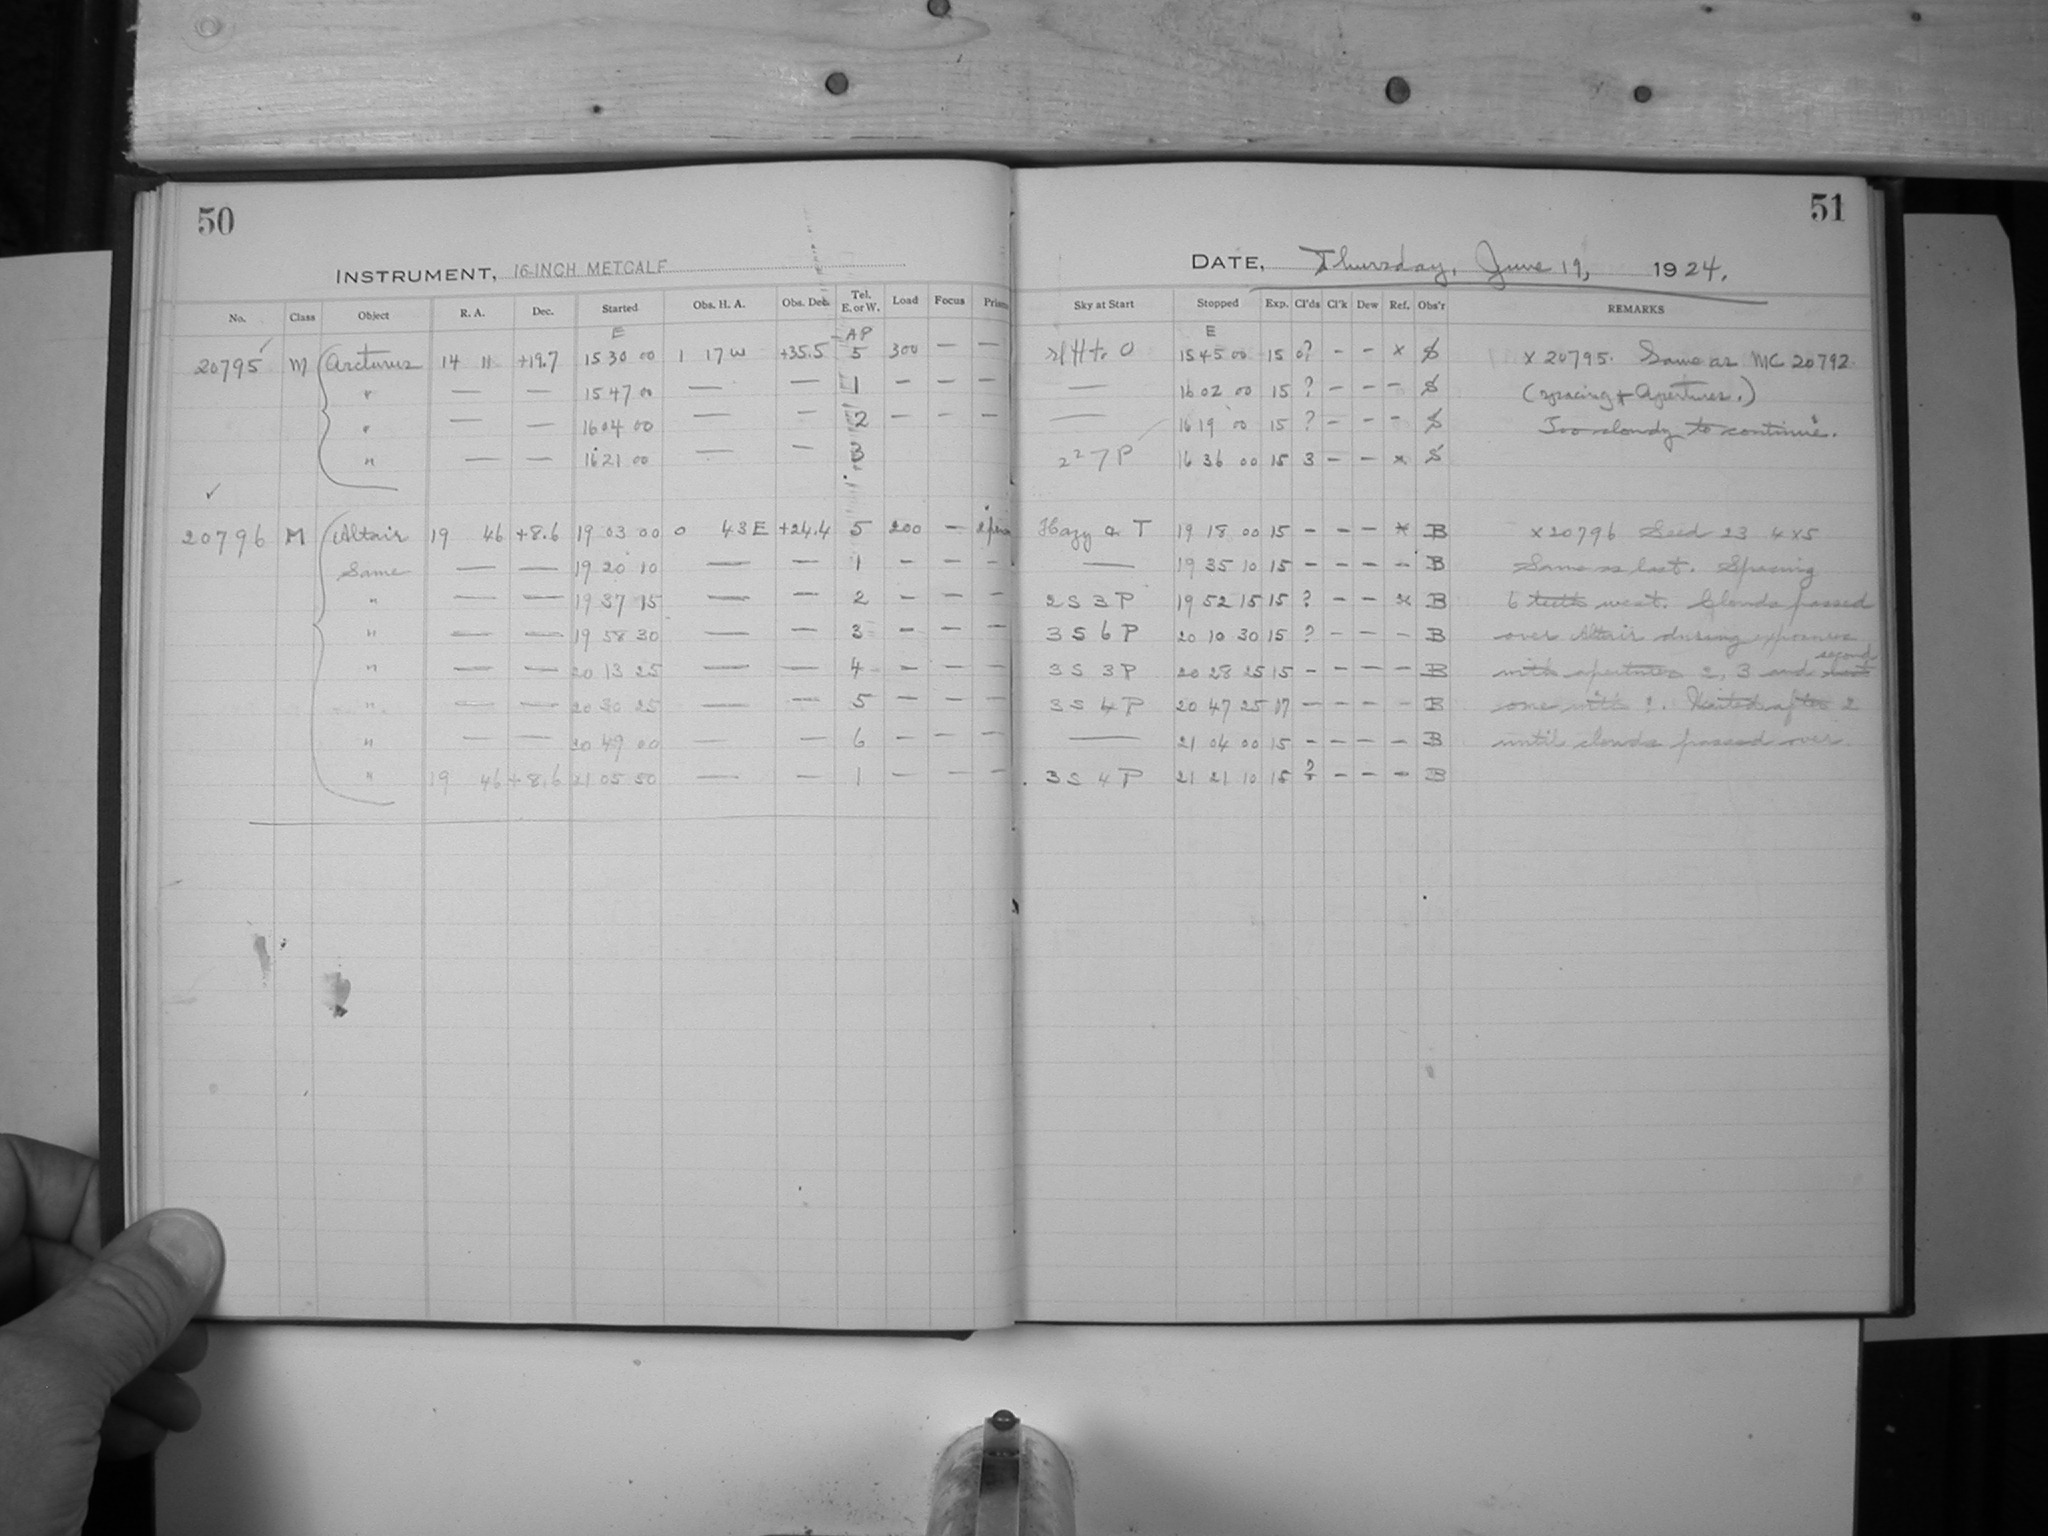 50
INSTRUMENT, 16-INCH METCALF
No. Class Object R. A. Dec. Started Obs. H. A. Obs. Dec. Tel. E. or W. Load Focus Prism
E AP
20795 M Arcturus 14 11 +19.7 15 30 00 1 17 W +35.5 5 300 — —
" — — 15 47 00 — — 1 — — —
" — — 16 04 00 — — 2 — — —
" — — 16 21 00 — — 3
20796 M Altair 19 46 +8.6 19 03 00 0 43 E +24.4 5 200 —
Same — — 19 20 10 — — 1 — — —
" — — 19 37 15 — — 2 — — —
" — — 19 58 30 — — 3 — — —
" — — 20 13 25 — — 4 — — —
" — — 20 30 25 — — 5 — — —
" — — 20 49 00 — — 6 — — —
" 19 46 +8.6 21 05 50 — — 1 — — —
51
DATE, Thursday, June 19, 1924.
Sky at Start Stopped Exp. Cl'ds Cl'k Dew Ref. Obs'r REMARKS
E
15 45 00 15 0? — — x S x 20795. Same as MC 20792.
— 16 02 00 15 ? — — — S (spacing + Apertures.)
— 16 19 00 15 ? — — — S Too cloudy to continue.
2 2 7 P 16 36 00 15 3 — — x S
Hazy a T 19 18 00 15 — — — x B x 20796 Seed 23 4x5
— 19 35 10 15 — — — — B Same as last. Spacing
2 S 3 P 19 52 15 15 ? — — x B 6 teeth west. Clouds passed
3 S 6 P 20 10 30 15 ? — — — B over Altair during exposures
3 S 3 P 20 28 25 15 — — — — B with apertures 2, 3 and second
3 S 4 P 20 47 25 17 — — — — B one with 1. Waited after 2
— 21 04 00 15 — — — — B until clouds passed over.
3 S 4 P 21 21 10 15 ? — — — B